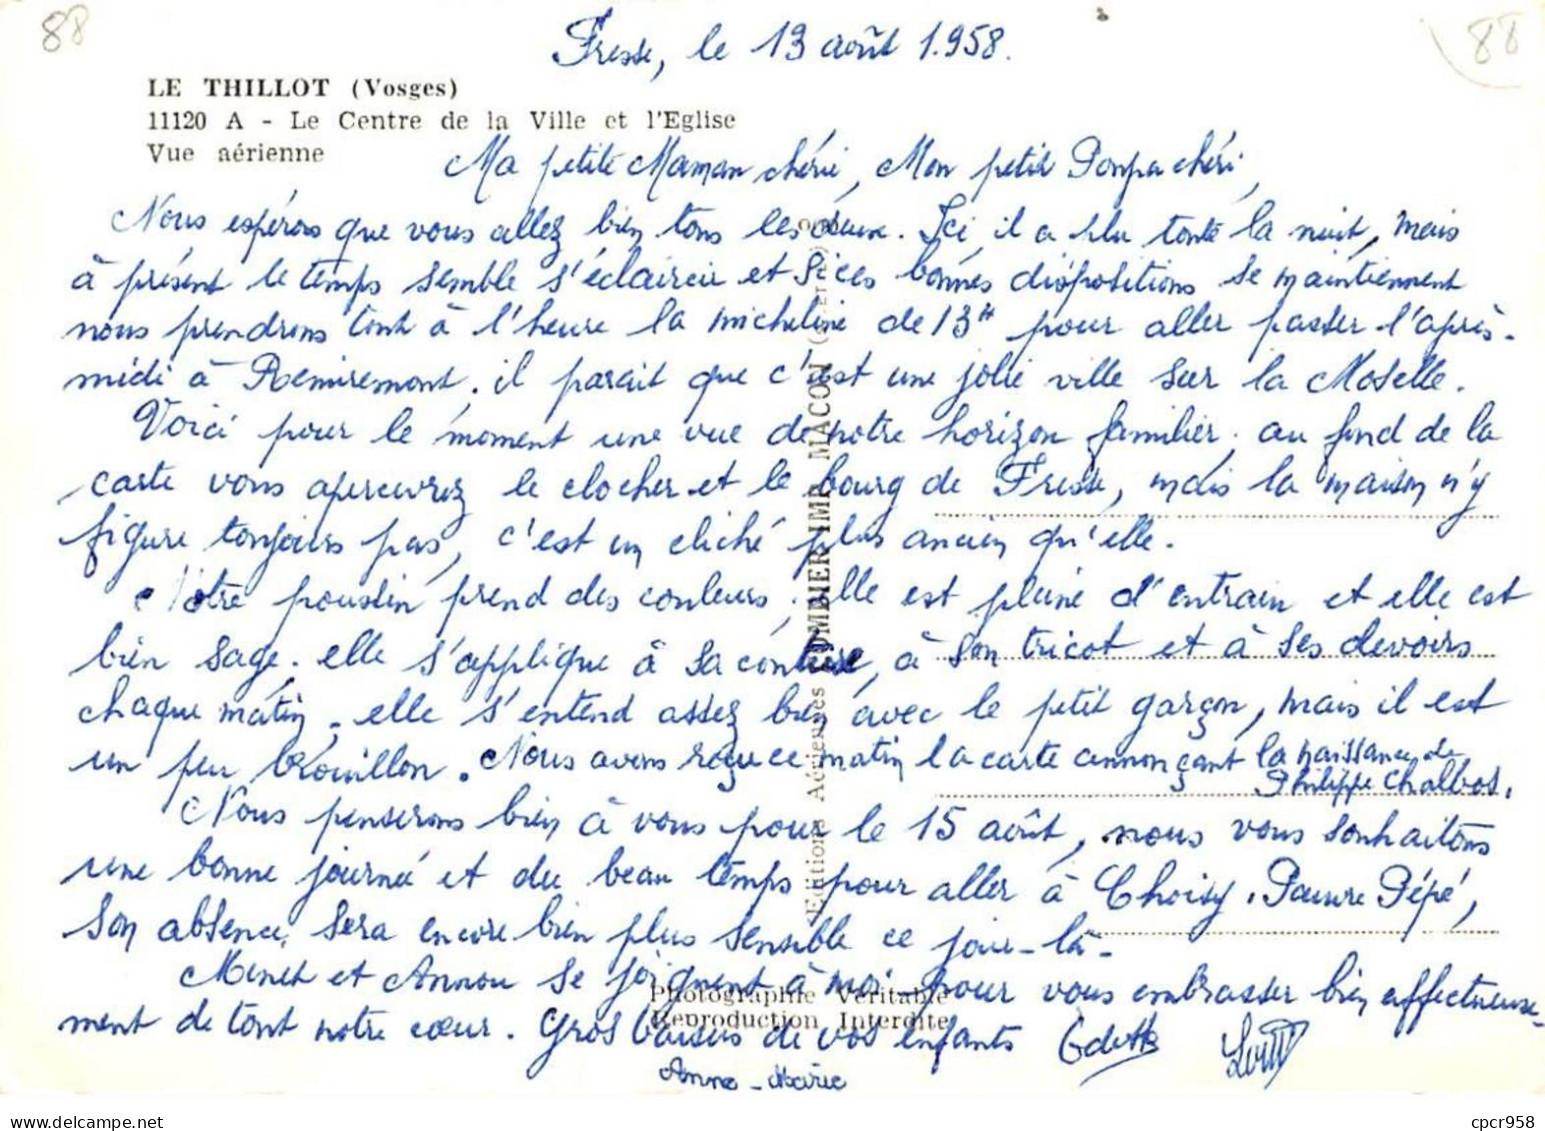 88
88
Fresse, le 13 août 1.958.
LE THILLOT (Vosges)
11120 A - Le Centre de la Ville et l'Eglise
Vue aérienne
Ma petite Maman chérie, Mon petit Ponpa chéri,
Nous espérons que vous allez bien tous les deux. Ici, il a plu toute la nuit, mais
à présent le temps semble s'éclaircir et si ces bonnes dispositions se maintiennent
nous prendrons tout à l'heure la micheline de 13h pour aller passer l'après-
midi à Remiremont. il parait que c'est une jolie ville sur la Moselle.
Voici pour le moment une vue de notre horizon familier. au fond de la
carte vous apercevrez le clocher et le bourg de Fresse, mais la maison n'y
figure toujours pas, c'est un cliché plus ancien qu'elle.
Notre poussin prend des couleurs. elle est pleine d'entrain et elle est
bien sage. elle s'applique à sa couture, à son tricot et à ses devoirs
chaque matin. elle s'entend assez bien avec le petit garçon, mais il est
un peu brouillon. Nous avons reçu ce matin la carte annonçant la naissance de
Philippe Chalbos.
Nous penserons bien à vous pour le 15 août, nous vous souhaitons
une bonne journée et du beau temps pour aller à Choisy. Pauvre Pépé,
son absence sera encore bien plus sensible ce jour-là-
Minet et Annou se joignent à moi pour vous embrasser bien affectueuse-
ment de tout notre cœur. Gros baisers de vos enfants Odette
Anne-Marie
Editions Aériennes COMBIER IMP. MACON
Photographie Véritable
Reproduction Interdite
cpcr958